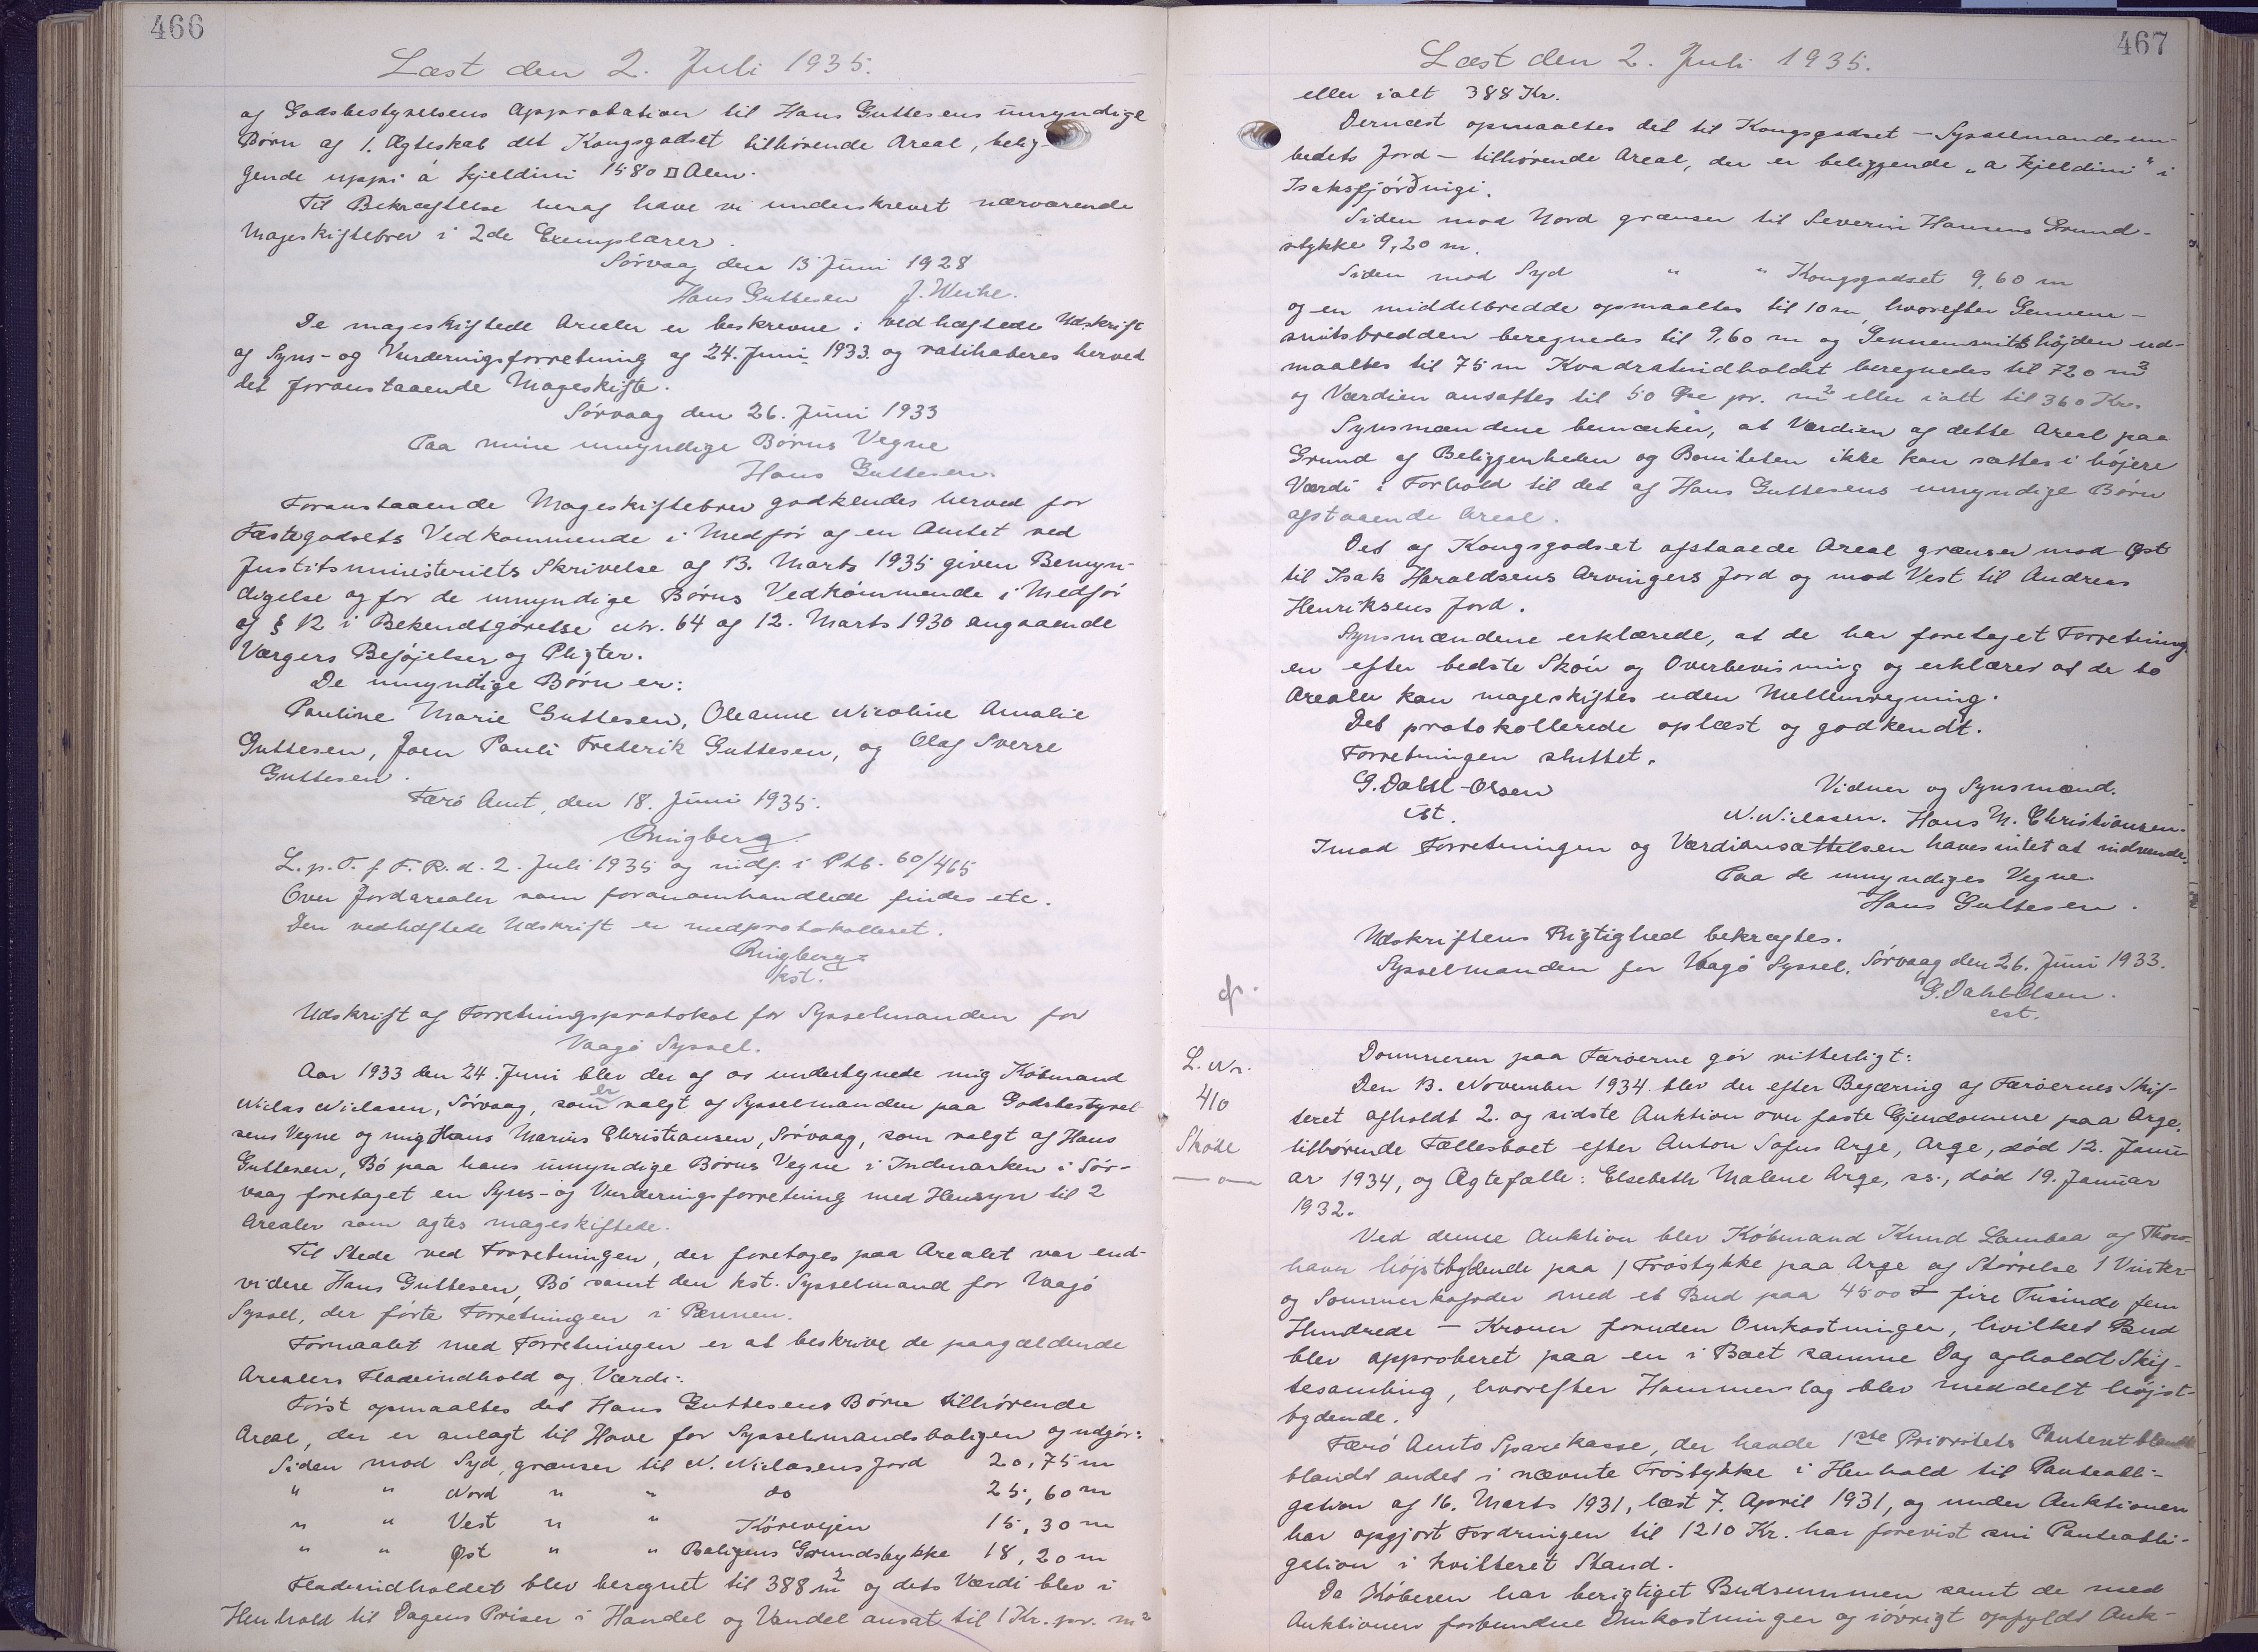 466
Læst den 2. Juli 1935.
af Godsbestyrelsens Approbation til Hans Guttesens umyndige
Børn af 1. Ægteskab det Kongsgodset tilhørende Areal, belig-
gende uppi á Kjeldini 1580 □ Alen.
Til Bekræftelse heraf have vi underskrevet nærværende
Mageskiftebrev i 2de Exemplarer.
Sørvaag den 15 Juni 1928
Hans Guttesen J. Weihe.
De mageskiftede Arealer er beskrevne i vedhæftede Udskrift
af Syns- og Vurderingsforretning af 24. Juni 1933. og ratihaberes herved
det foranstaaende Mageskifte.
Sørvaag den 26. Juni 1933
Paa mine umyndige Børns Vegne
Hans Guttesen.
Foranstaaende Mageskiftebrev godkendes herved for
Fæstegodsets Vedkommende i Medfør af en Amtet ved
Justitsministeriets Skrivelse af 13. Marts 1935 given Bemyn-
digelse og for de umyndige Børns Vedkommende i Medfør
af § 12 i Bekendtgørelse nr. 64 af 12. Marts 1930 angaaende
Værgers Beføjelser og Pligter.
De umyndige Børn er:
Pauline Marie Guttesen, Oleanne Nicoline Amalie
Guttesen, Joen Pauli Frederik Guttesen, og Olaf Sverre
Guttesen.
Færø Amt, den 18. Juni 1935.
Ringberg
L. p. T. f F. R. d. 2. Juli 1935 og indf. i Ptb. 60/465
Over Jordarealer som foranomhandlede findes etc.
Den vedhæftede Udskrift er medprotokolleret.
Ringberg
kst.
Udskrift af Forretningsprotokol for Sysselmanden for
Vaagø Syssel.
Aar 1933 den 24. Juni blev der af os undertegnede mig Købmand
Niclas Niclasen, Sørvaag, som er valgt af Sysselmanden paa Godsbestyrel-
sens Vegne og mig Hans Marius Christiansen, Sørvaag, som valgt af Hans
Guttesen, Bø paa hans umyndige Børns Vegne i Indmarken i Sør-
vaag foretaget en Syns- og Vurderingsforretning med Hensyn til 2
Arealer som agtes mageskiftede.
Til Stede ved Forretningen, der foretages paa Arealet var end-
videre Hans Guttesen, Bø samt den kst. Sysselmand for Vaagø
Syssel, der førte Forretningen i Pennen.
Formaalet med Forretningen er at beskrive de paagældende
Arealers Fladeindhold og Værdi:
Først opmaaltes det Hans Guttesens Børn tilhørende
Areal, der er anlagt til Have for Sysselmandsboligen og udgør:
Siden mod Syd, grænser til N. Niclasens Jord 20,75 m
" " Nord " " do 25,60 m
" " Vest " " Kørevejen 15,30 m
" " Øst " " Boligens Grundstykke 18,20 m
Fladeindholdet blev beregnet til 388 m² og dets Værdi blev i
Henhold til Dagens Priser i Handel og Vandel ansat til 1 Kr. pr. m²
467
Læst den 2. Juli 1935.
eller ialt 388 Kr.
Dernæst opmaaltes det til Kongsgodset – Sysselmandsem-
bedets Jord – tilhørende Areal, der er beliggende „a Kjeldini" i
Isaksfjórðingi.
Siden mod Nord grænser til Severin Hansens Grund-
stykke 9,20 m.
Siden mod Syd " " Kongsgodset 9,60 m
og en middelbredde opmaaltes til 10 m, hvorefter Gennem-
snitsbredden beregnedes til 9,60 m og Gennemsnitshøjden ud-
maaltes til 75 m Kvadratindholdet beregnedes til 720 m²
og Værdien ansattes til 50 Øre pr. m² eller ialt til 360 Kr.
Synsmændene bemærker, at Værdien af dette Areal paa
Grund af Beliggenheden og Boniteten ikke kan sættes i højere
Værdi i Forhold til det af Hans Guttesens umyndige Børn
afstaaende Areal.
Det af Kongsgodset afstaaede Areal grænser mod Øst
til Isak Haraldsens Arvingers Jord og mod Vest til Andreas
Henriksens Jord.
Synsmændene erklærede, at de har foretaget Forretning-
en efter bedste Skøn og Overbevisning og erklærer at de to
Arealer kan mageskiftes uden Mellemvejning.
Det protokollerede oplæst og godkendt.
Forretningen sluttet.
G. Dahl-Olsen Vidner og Synsmænd.
cst. N. Niclasen. Hans M. Christiansen.
Imod Forretningen og Værdiansættelsen haves intet at indvende.
Paa de umyndiges Vegne
Hans Guttesen.
Udskriftens Rigtighed bekræftes.
Sysselmanden for Vaagø Syssel, Sørvaag den 26. Juni 1933.
G. Dahl Olsen.
cst.
L. Nr.
410
Skøde
Dommeren paa Færøerne gør vitterligt:
Den 13. November 1934 blev der efter Begæring af Færøernes Skif-
teret afholdt 2. og sidste Auktion over faste Ejendomme paa Arge,
tilhørende Fællesboet efter Anton Sofus Arge, Arge, død 12. Janu-
ar 1934, og Ægtefælle: Elsebeth Malene Arge, ss., død 19. Januar
1932.
Ved denne Auktion blev Købmand Knud Lambaa af Thors-
havn højstbydende paa 1 Trøstykke paa Arge af Størrelse 1 Vinter-
og Sommerkofoder med et Bud paa 4500 – fire Tusinde fem
Hundrede – Kroner foruden Omkostninger, hvilket Bud
blev approberet paa en i Boet samme Dag afholdt Skif-
tesamling, hvorefter Hammerslag blev meddelt højst-
bydende.
Færø Amts Sparekasse, der havde 1ste Prioritets Panteret blandt
blandt andet i nævnte Trøstykke i Henhold til Panteobli-
gation af 16. Marts 1931, læst 7. April 1931, og under Auktionen
har opgjort Fordringen til 1210 Kr. har forevist sin Panteobli-
gation i kvitteret Stand.
Da Køberen har berigtiget Budsummen samt de med
Auktionen forbundne Omkostninger og iøvrigt opfyldt Auk-